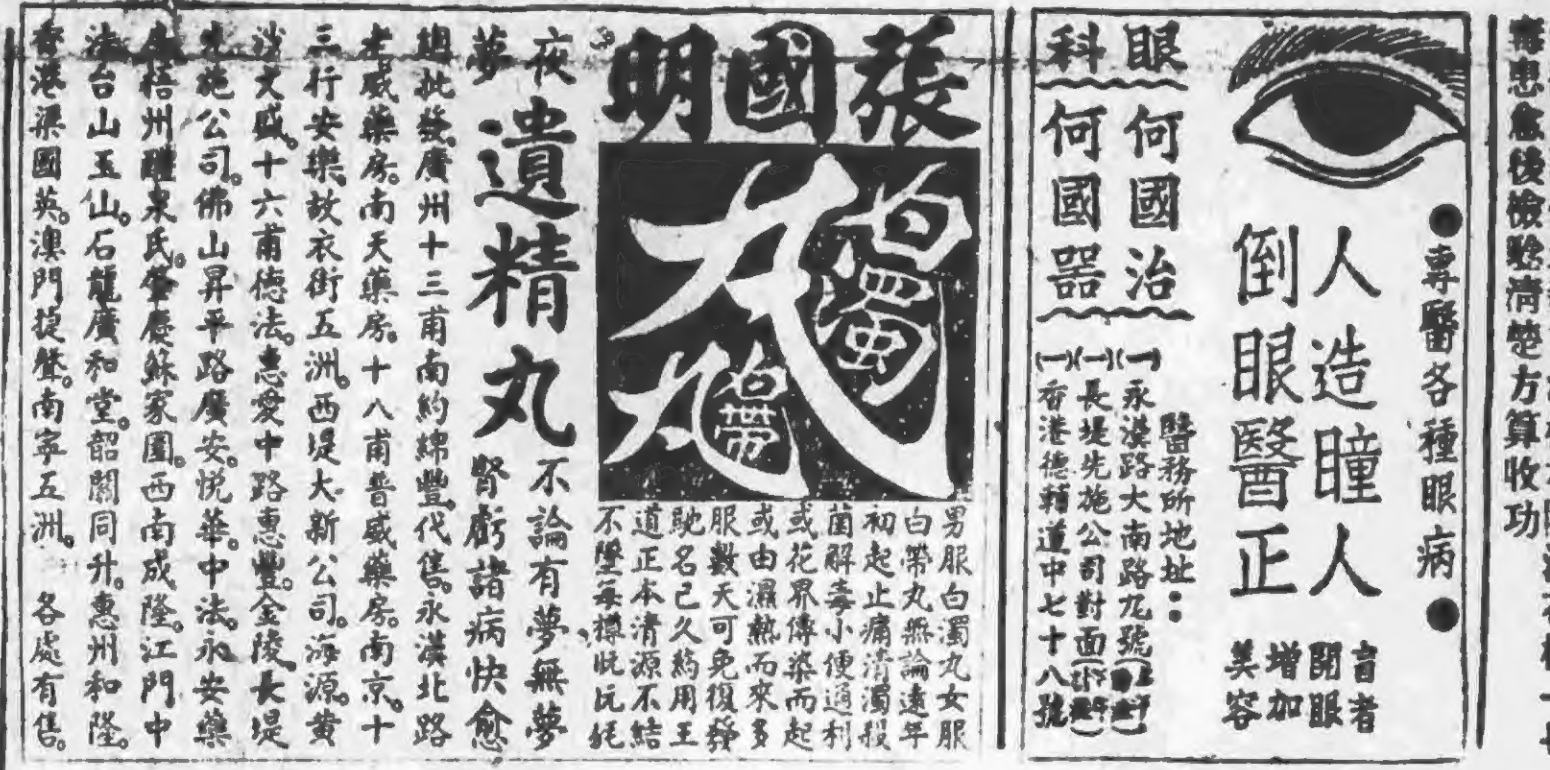 毒患愈後檢驗清楚方算收功
●專醫各種眼病●
人造瞳人
倒眼醫正
盲者
開眼
增加
美容
眼科
何國治
何國器
醫務所地址：
(一)永漢路大南路九號
(一)長堤先施公司對面
(一)香港德輔道中七十八號
張國明
白濁丸
白帶丸
男服白濁丸女服
白帶丸無論遠年
初起止痛清濁殺
菌解毒小便通利
或花界傳染而起
或由濕熱而來多
服數天可免復發
馳名已久純用王
道正本清源不結
不墜每樽
夜夢遺精丸
不論有夢無夢
腎虧諸病快愈
總批發廣州十三甫南約綿豐代售永漢北路
老威藥房。南天藥房。十八甫普威藥房。南京。十
三行安樂。故衣街五洲。西堤大新公司。海源。黄
沙文盛。十六甫德法。惠愛中路惠豐。金陵。長堤
先施公司。佛山昇平路廣安。悅華。中法。永安藥
梧州醴泉氏。肇慶蘇家園。西南成隆。江門中
法台山玉山。石龍廣和堂。韶關同升。惠州和隆。
香港梁國英。澳門捷聲。南寧五洲。各處有售。